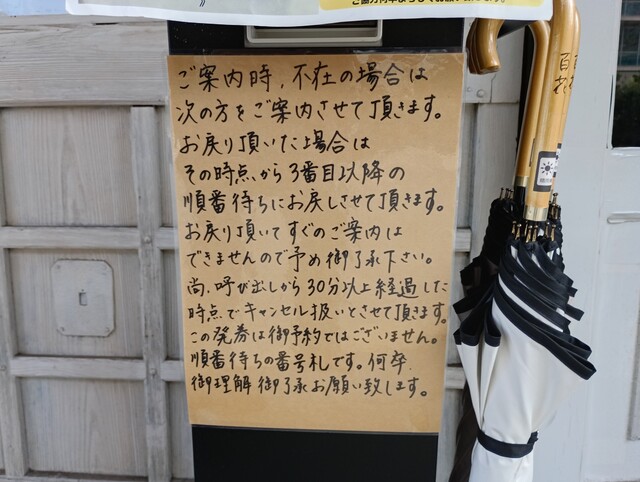 ご案内時、不在の場合は
次の方をご案内させて頂きます。
お戻り頂いた場合は
その時点から3番目以降の
順番待ちにお戻しさせて頂きます。
お戻り頂いてすぐのご案内は
できませんので予め御了承下さい。
尚、呼び出しから30分以上経過した
時点でキャンセル扱いとさせて頂きます。
この発券は御予約ではございません。
順番待ちの番号札です。何卒
御理解御了承お願い致します。